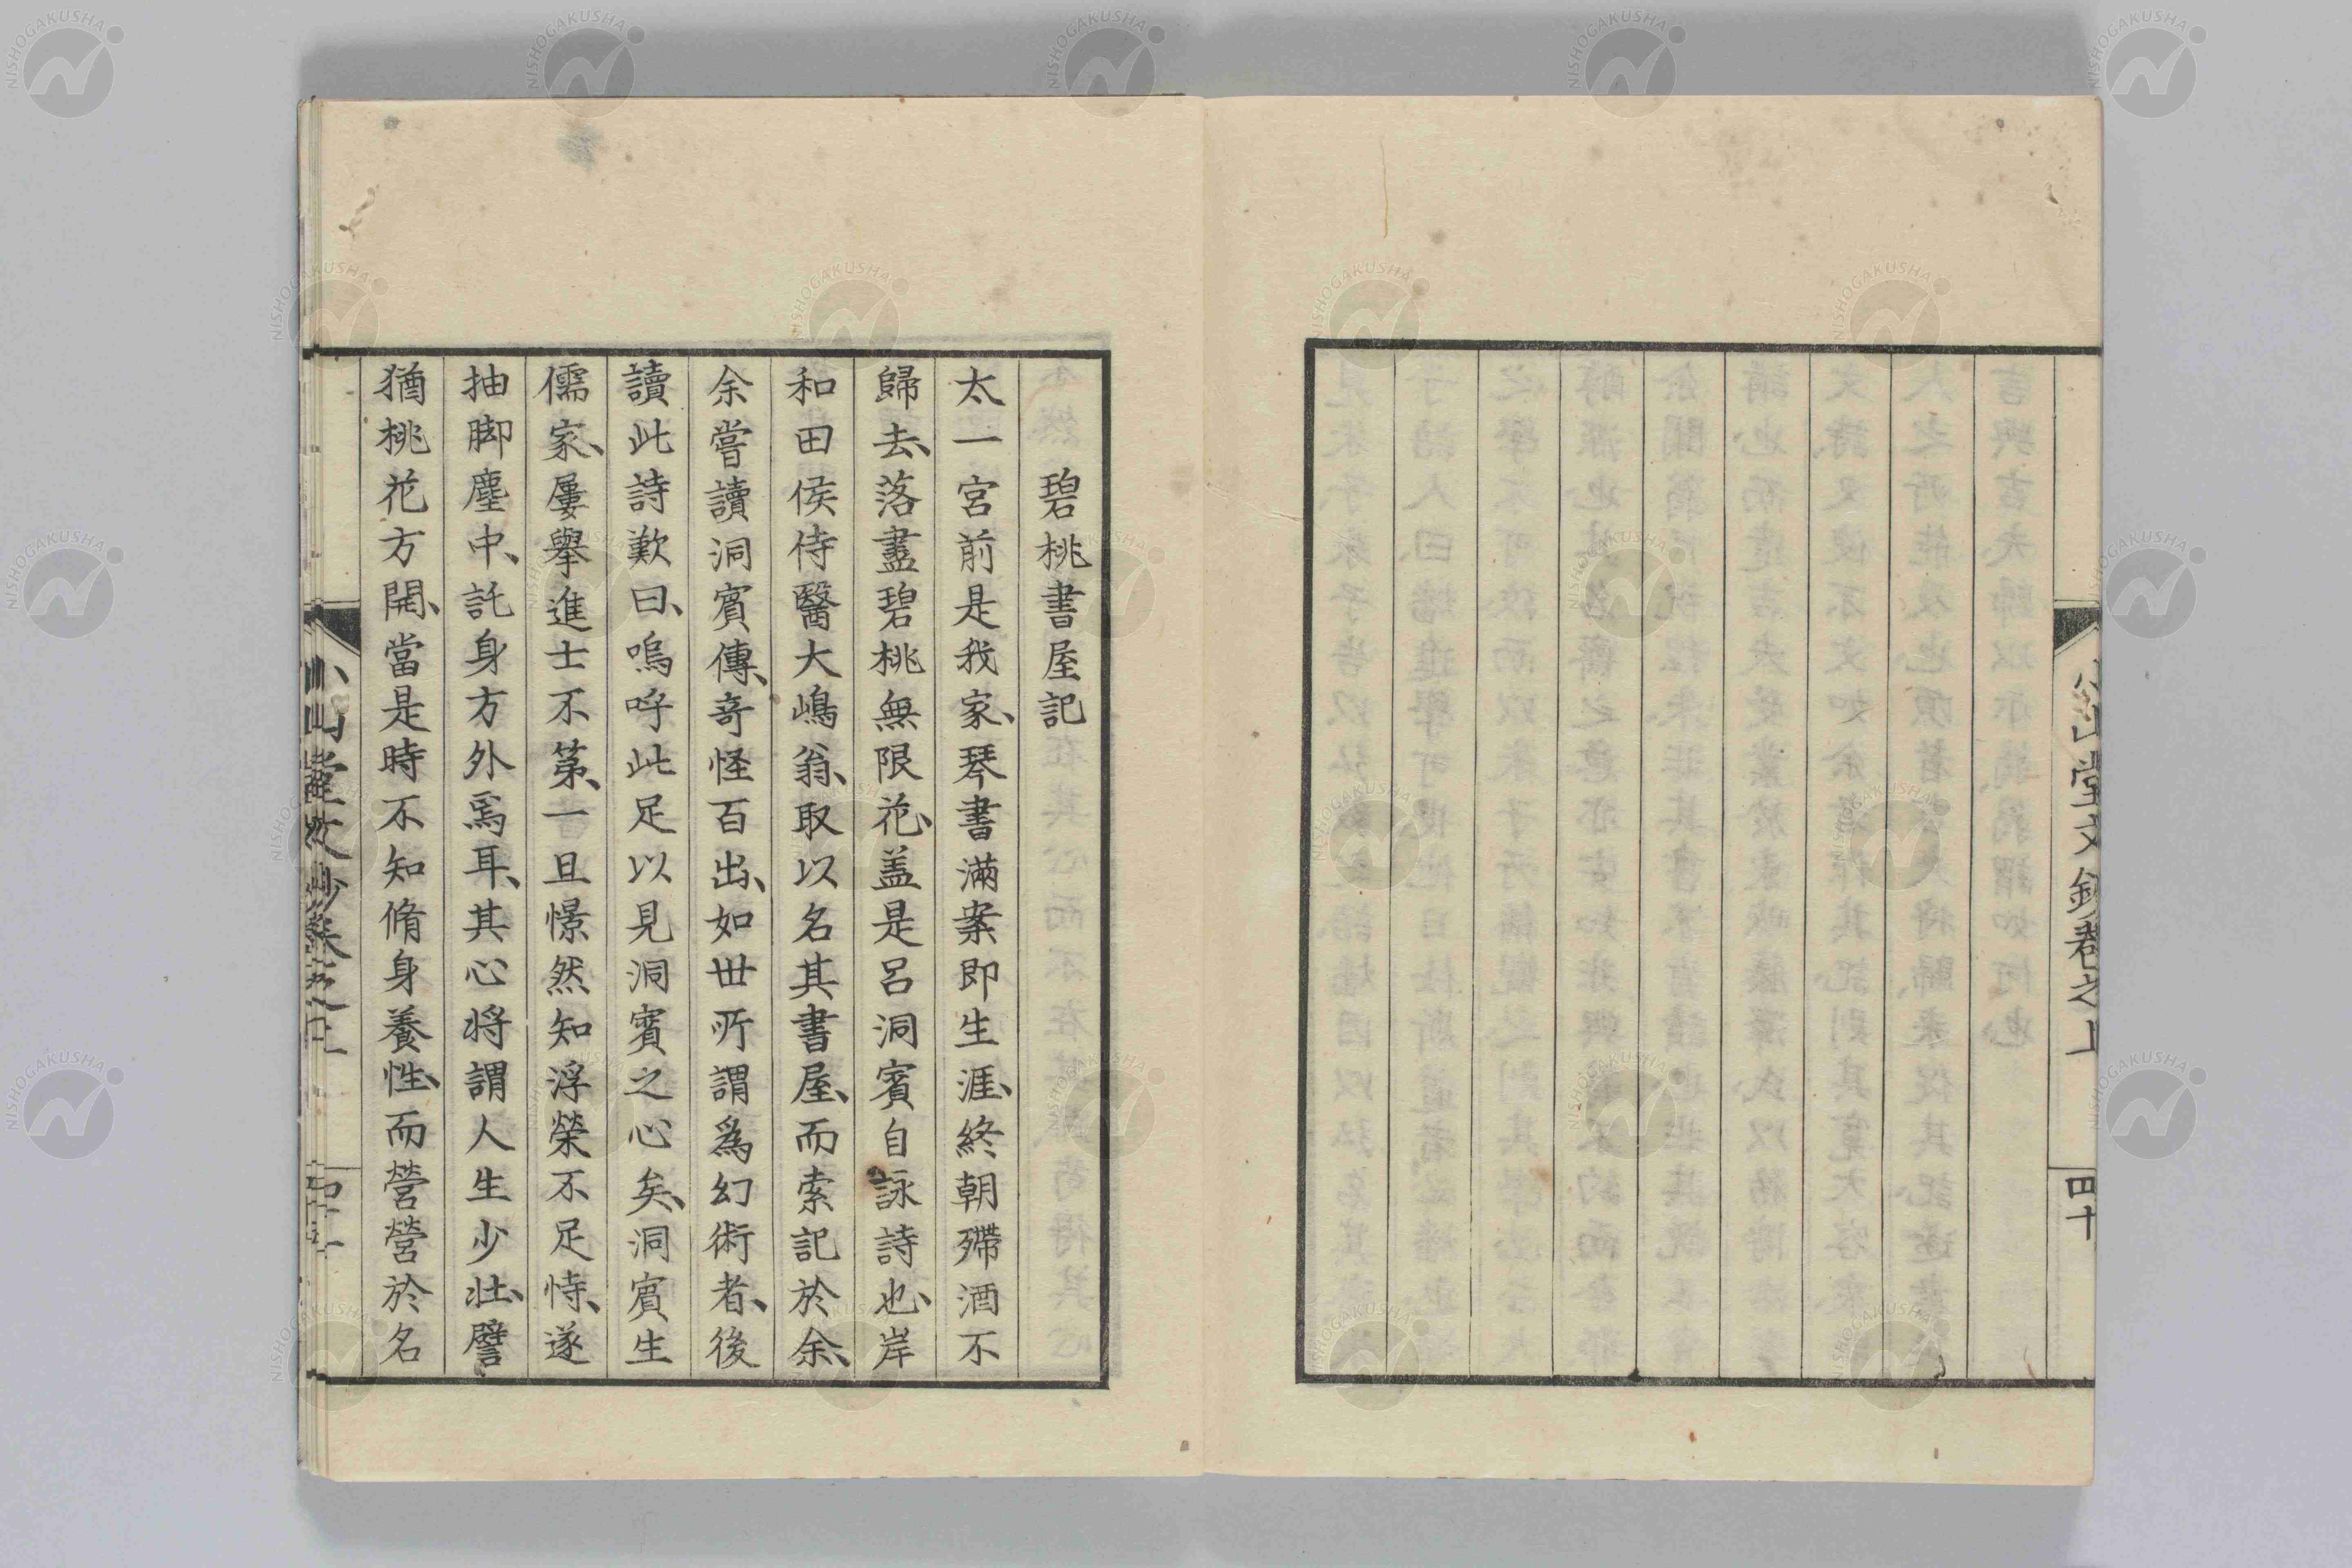 小山堂文鈔卷之上
四十
碧桃書屋記
太一宮前是我家、琴書滿案即生涯、終朝殢酒不
歸去、落盡碧桃無限花、盖是呂洞賓自詠詩也、岸
和田侯侍醫大嶋翁、取以名其書屋、而索記於余、
余嘗讀洞賓傳、奇怪百出、如世所謂爲幻術者、後
讀此詩歎曰、嗚呼此足以見洞賓之心矣、洞賓生
儒家、屢擧進士不第、一旦憬然知浮榮不足恃、遂
抽脚塵中、託身方外焉耳、其心將謂人生少壯、譬
猶桃花方開、當是時不知脩身養性、而營營於名
小山堂文鈔卷之上
四十一